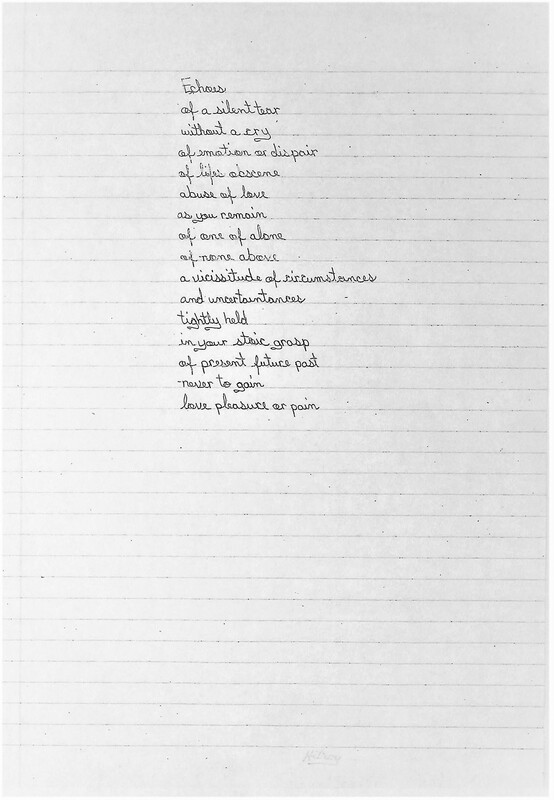 Echoes
of a silent tear
without a cry
of emotion or dispair
of life's obscene
abuse of love
as you remain
of one of alone
of none above
a vicissitude of circumstances
and uncertaintances
tightly held
in your stoic grasp
of present future past
never to gain
love pleasure or pain